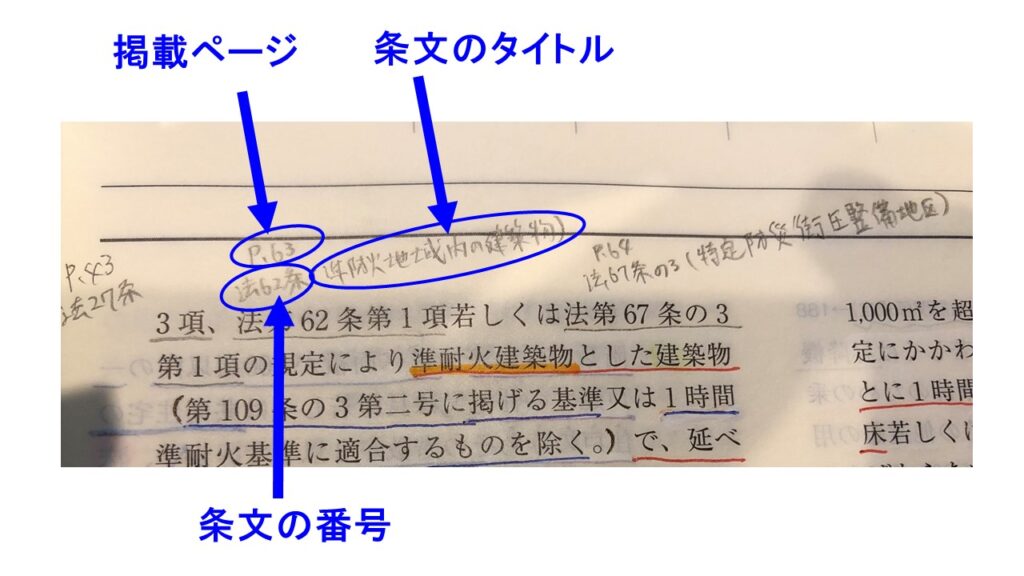 掲載ページ
条文のタイトル
P.43
法27条
P.63
法62条
(準防火地域内の建築物)
P.64
法67条の3(特定防災街区整備地区)
3項、法第62条第1項若しくは法第67条の3
第1項の規定により準耐火建築物とした建築物
(第109条の3第二号に掲げる基準又は1時間
準耐火基準に適合するものを除く。)で、延べ
1,000㎡を超
定にかかわ
とに1時間
床若しくは
条文の番号